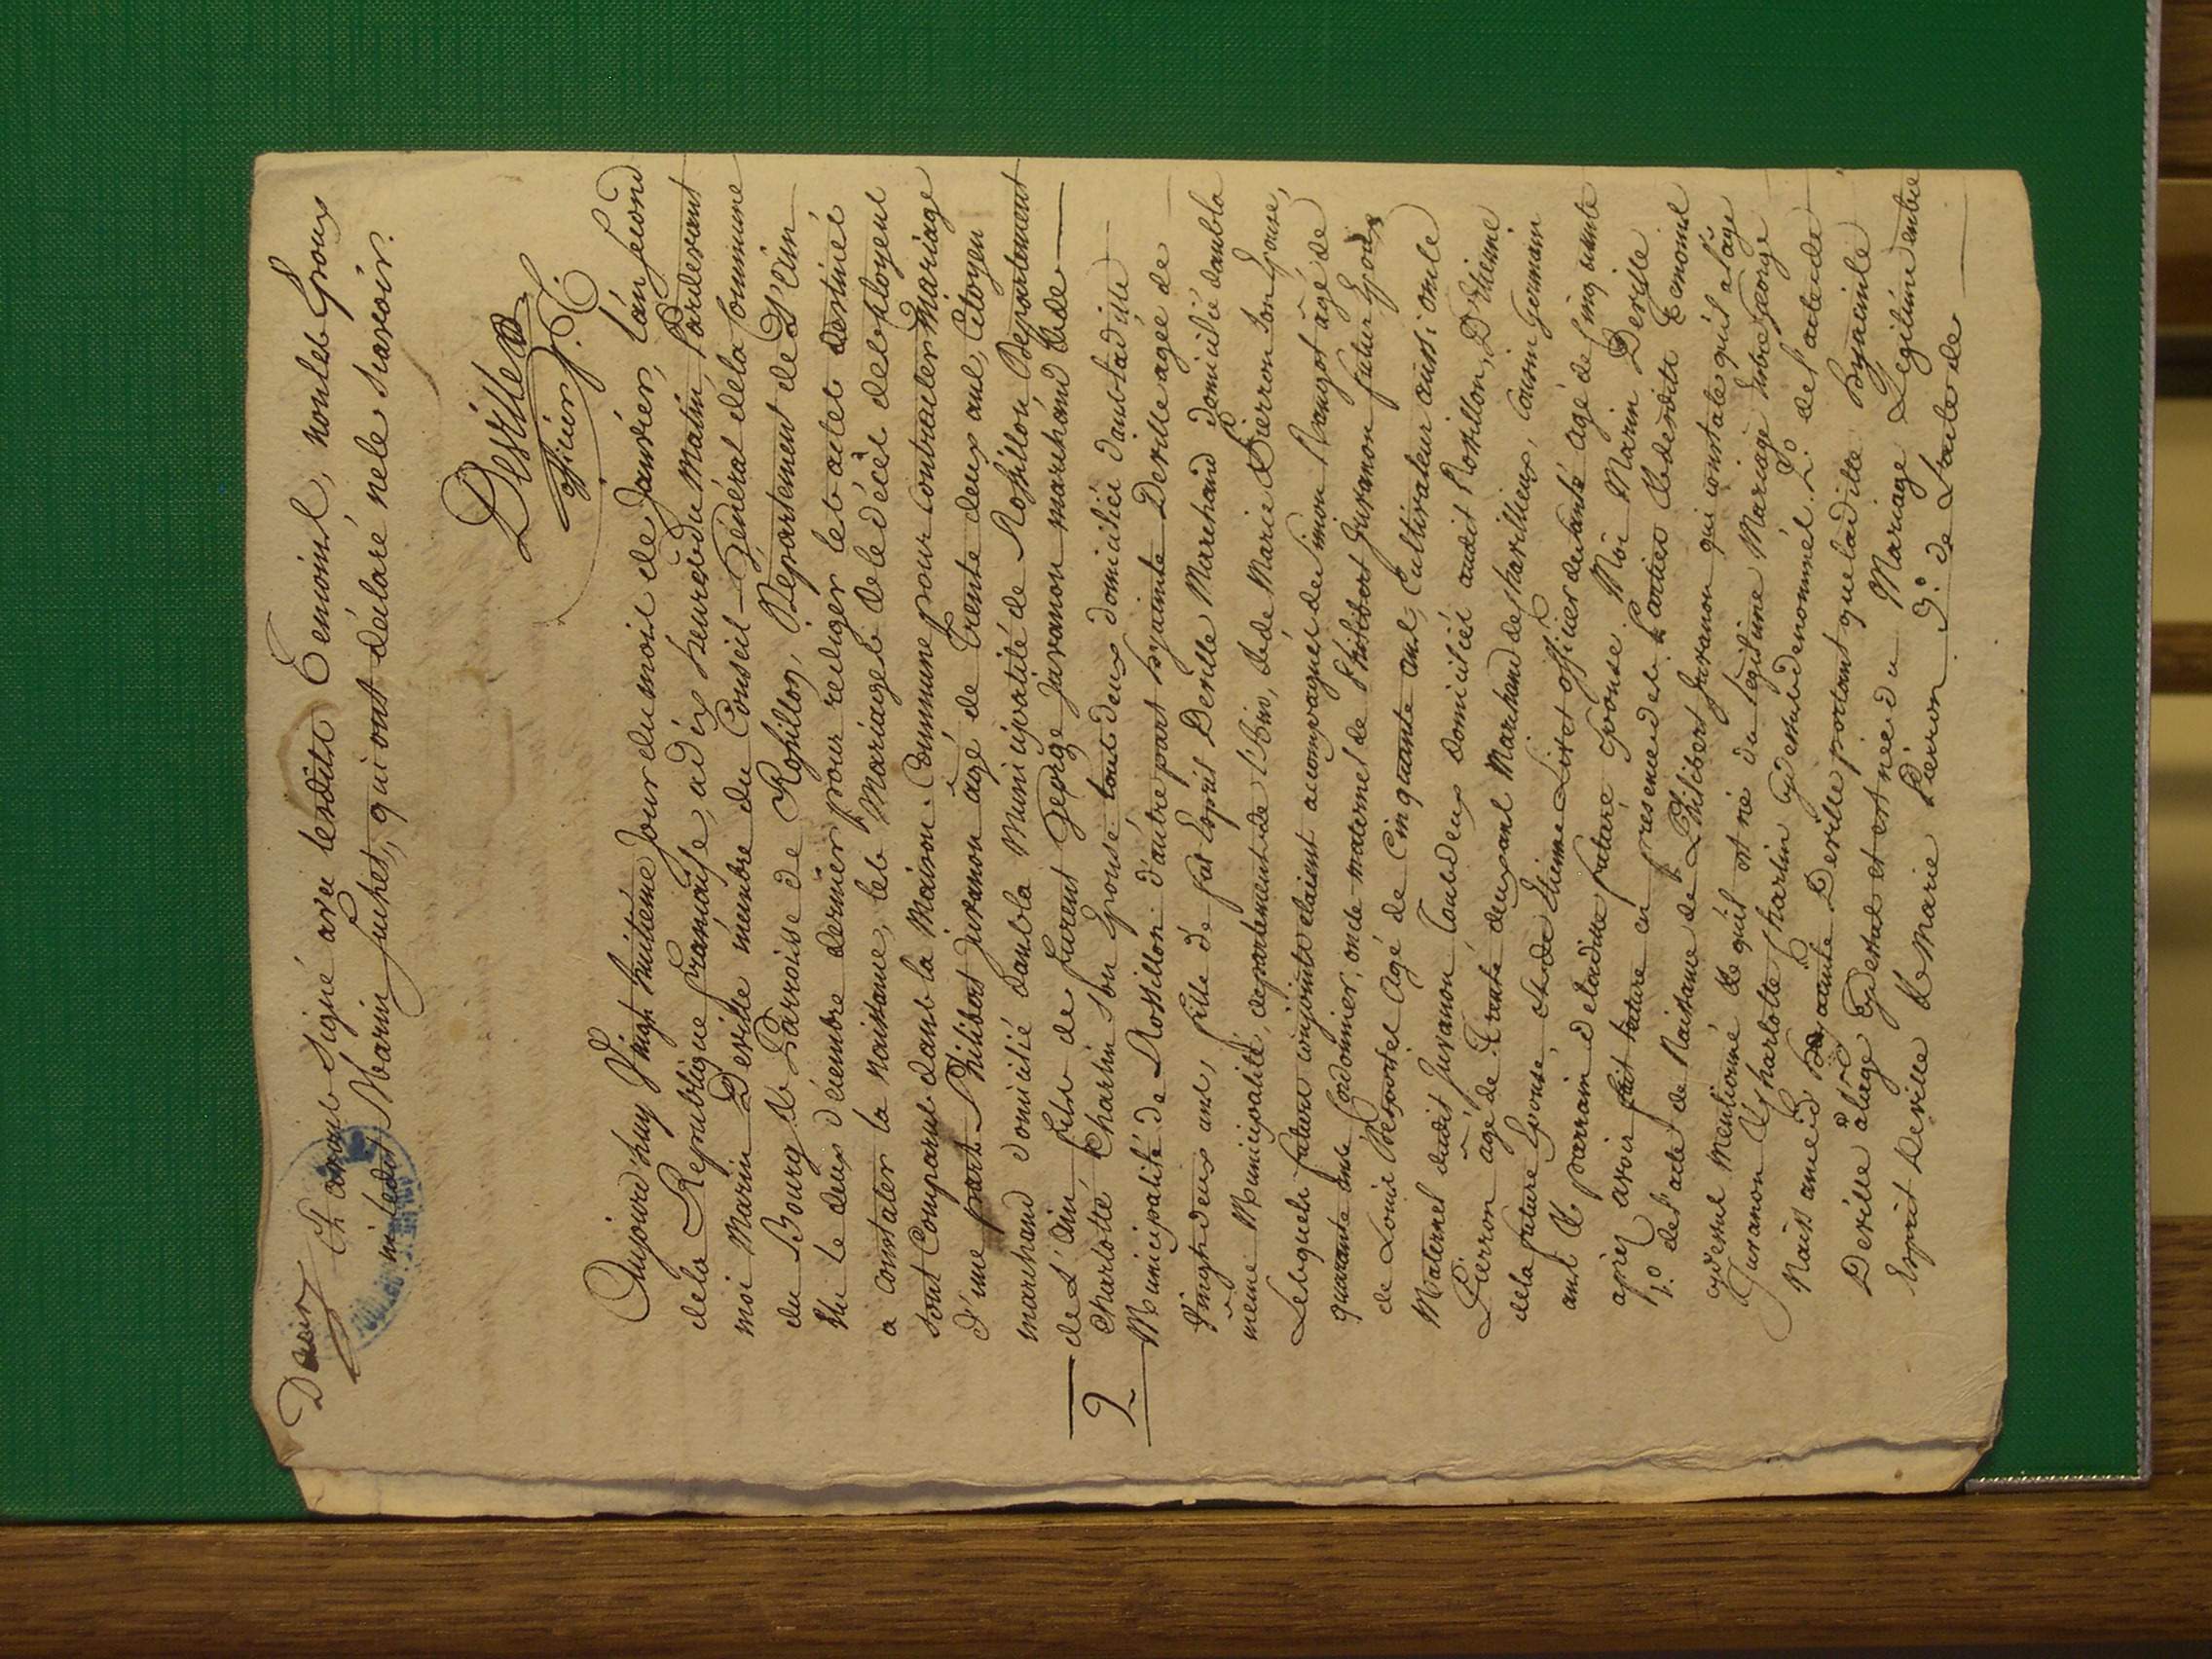 Et avons signé avec lesdits Temoins, non les Epoux
ni ledit Marin Juhet, qui ont déclaré ne le Scavoir.
Deville
officier P. C.
Aujourd'huy Vingt huitieme Jour du mois de Janvier, l'án second
dela Republique francaise, a dix heures du Matin, Pardevant
moi Marin Deville membre du Conseil Général dela Commune
du Bourg & Parroisse de Rossillon, Departement de L'ain
élu le deux décembre dernier pour rediger les actes destinés
a constater la naissance, les Mariages & le décès des citoyens
sont Comparus dans la Maison Commune pour contracter Mariage
d'une part Philibert Juvanon âgé de Trente deux ans, Citoyen
marchand domicilié dans la Municipalité de Rossillon Departement
de L'ain, fils de Laurent George Juvanon marchand & de
Charlotte Charlin son Epouse tous deux domiciliés dans ladite
2
Municipalité de Rossillon d'autre part hyacinte Deville agée de
Vingt deux ans, fille de feu Esprit Deville Marchand domicilié dans la
meme Municipalité, departement de l'Ain, & de Marie Pierron Son Epouse,
Lesquels futurs conjoints etaient accompagnés de Simon Mangot âgé de
quarante ans Cordonnier, oncle maternel de Philibert Juvanon futur Epoux
de Louis agé de Cinquante ans, Cultivateur aussi oncle
Maternel dudit Juvanon, Tous deux domiciliés audit Rossillon, D'Etienne
Pierron âgé de Trente deux ans Marchand de , cousin Germain
dela future Epouse, et de Etienne officier de santé agé de Cinquante
ans & parrain de ladite future Epouse. Moi Marin Deville
après avoir fait lecture en presence des Parties & desdits Temoins
1.º de l'acte de Naissance de Philibert Juvanon qui constate qu'il a l'age
cydessus Mentionné & qu'il est né du légitime Mariage Entre George
Juvanon & Charlotte Charlin cydessus denommés. 2.º de l'acte de
Naissance de hyacinte Deville portant que ladite hyacinte
Deville a l'age cydessus et est née du Mariage Légitime entre
Esprit Deville & Marie Pierron 3.º de L'acte de